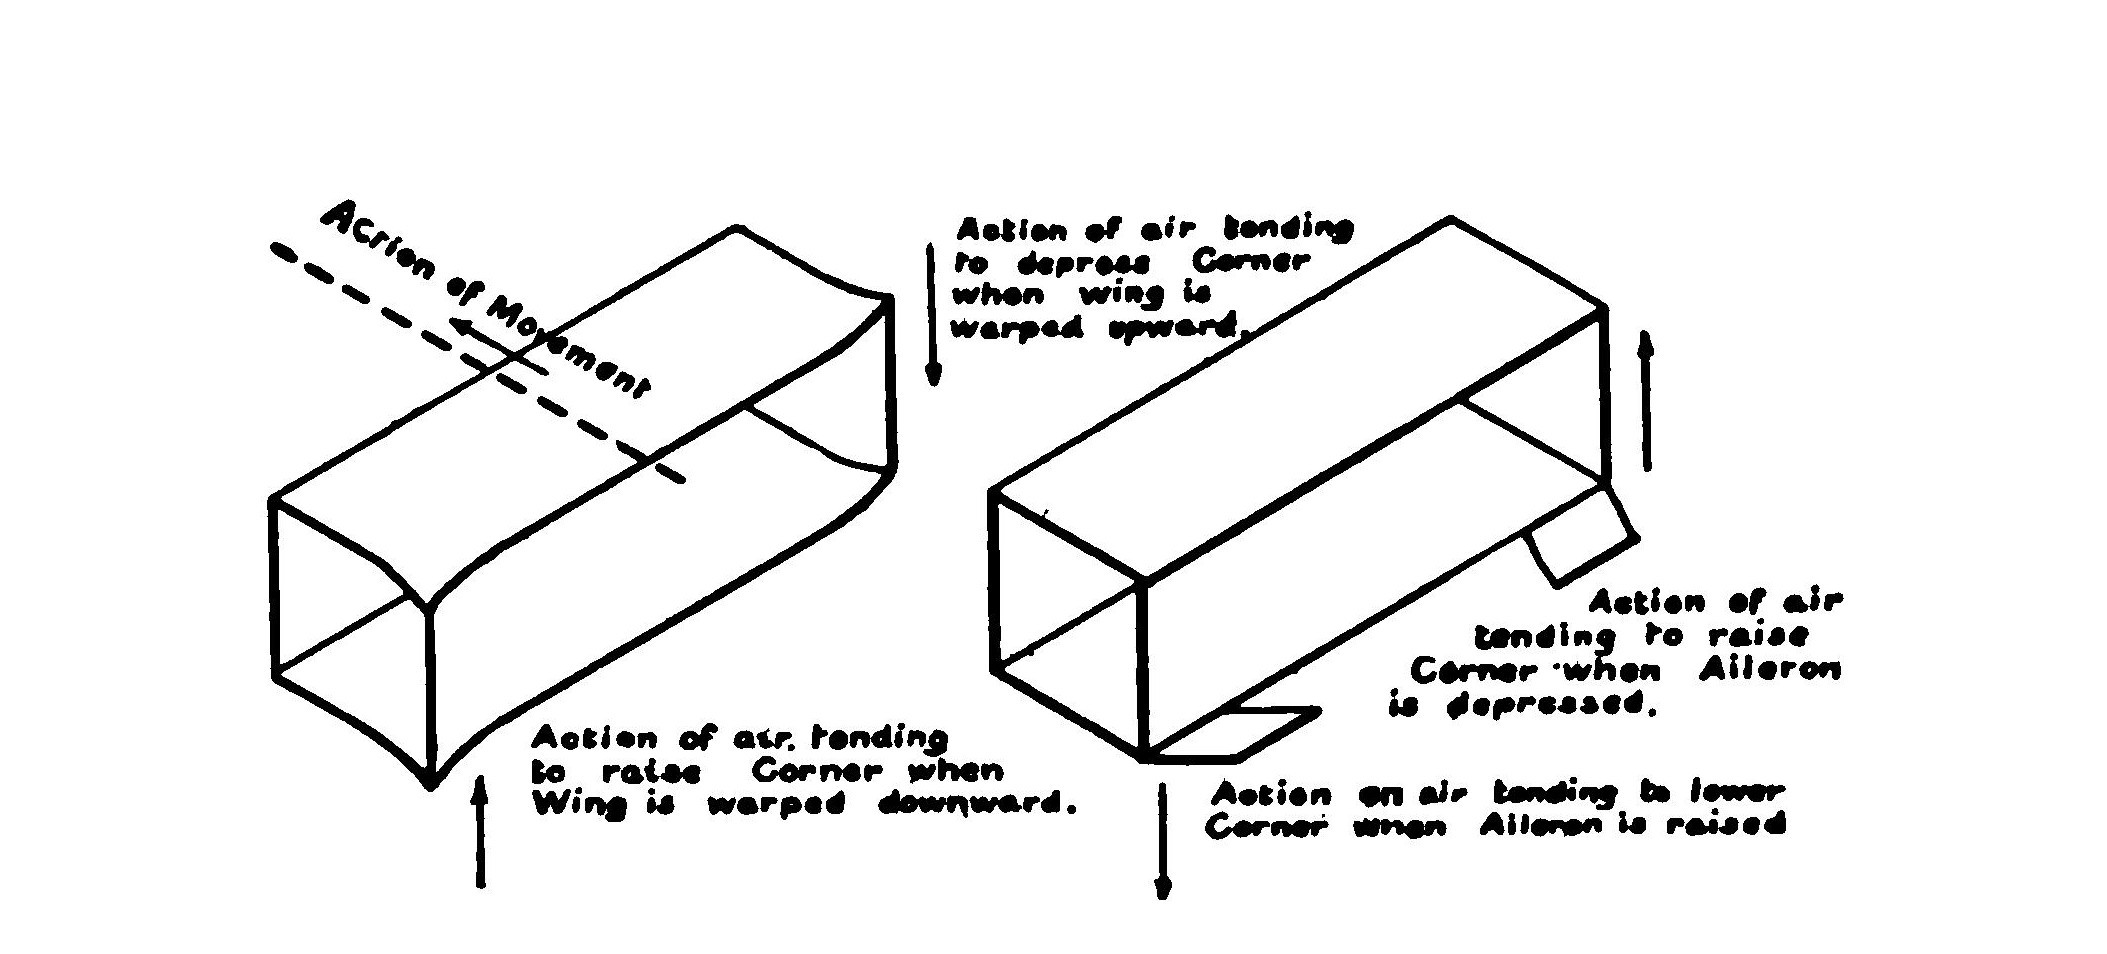 Acrion of Movement
Action of air tending
to depress Corner
when wing is
warped upward.
Action of air tending
to raise Corner when
Wing is warped downward.
Action of air
tending to raise
Corner when Aileron
is depressed.
Action on air tending to lower
Corner when Aileron is raised